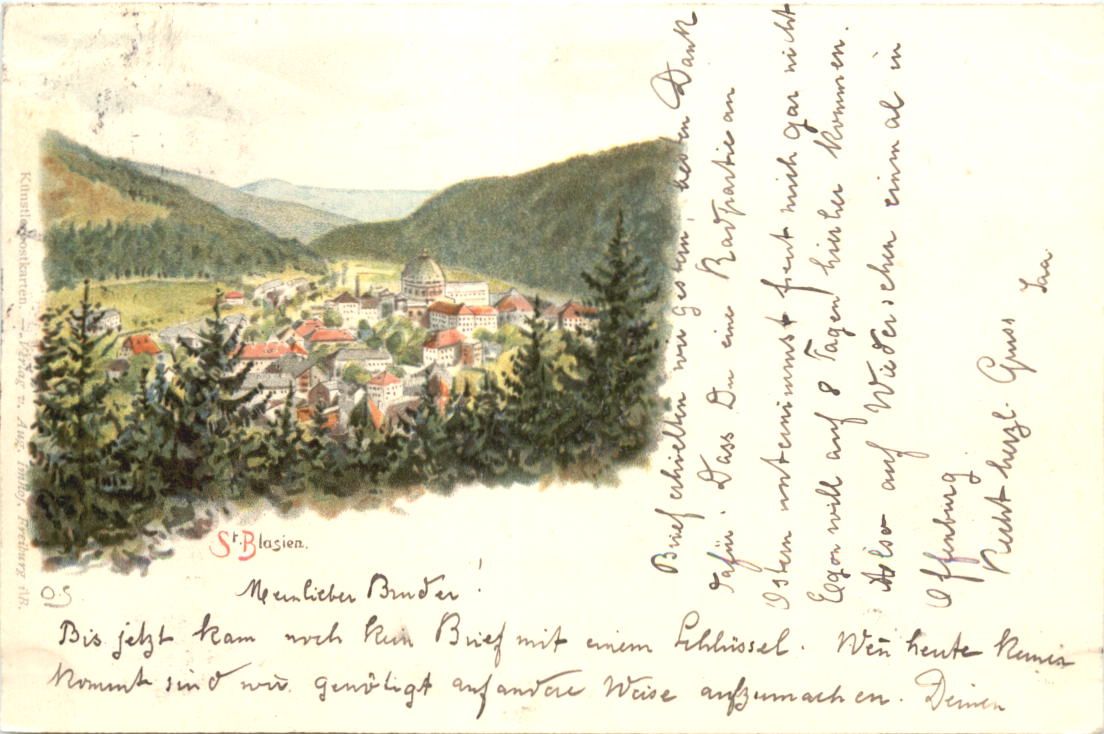 Künstlerpostkarten. – Verlag v. Aug. Imhof, Freiburg i/B.
St. Blasien.
O.S
Mein lieber Bruder!
Bis jetzt kam noch kein Brief mit einem Schlüssel. Weñ heute keiner
kommt sind wir genötigt auf andere Weise aufzumachen. Deinen
Brief erhielten wir gestern, besten Dank
dafür! Dass Du eine Radpartie an
Ostern unternimmst freut mich gar nicht
Egon will auf 8 Tagen hierher kommen.
Also auf Wiedersehen einmal in
Offenburg
Recht herzl. Gruss